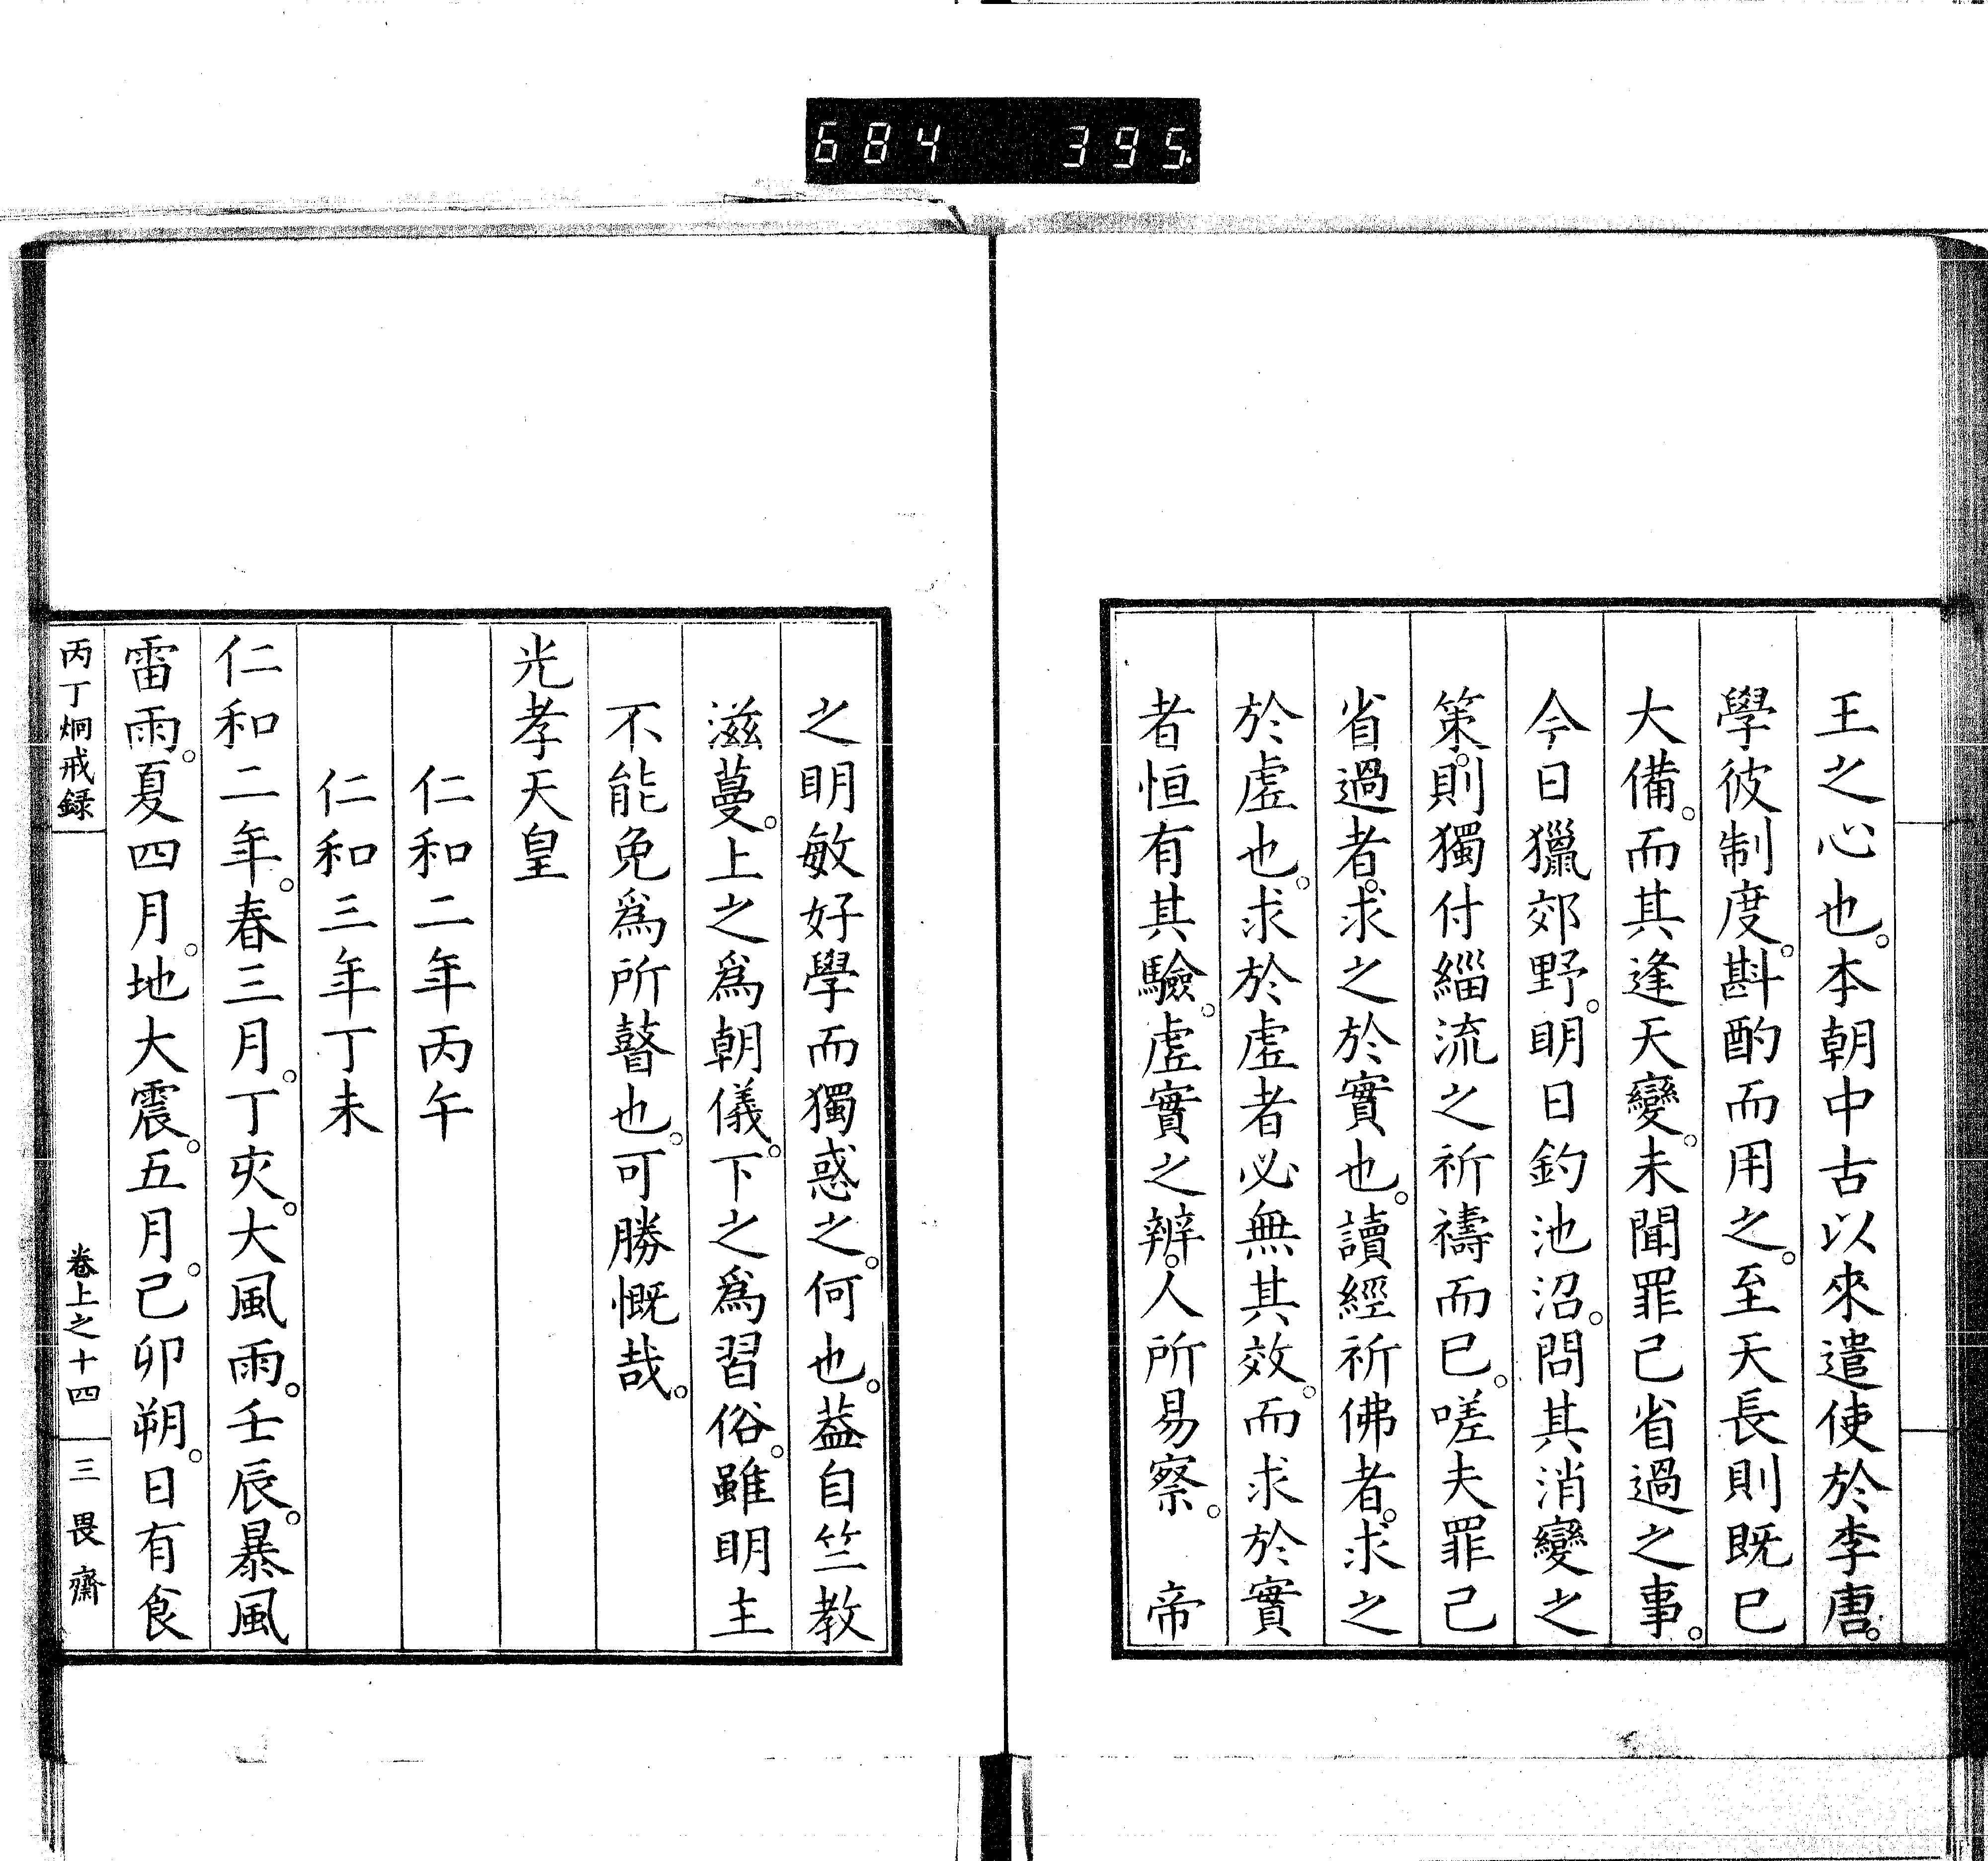 684 395
王之心也。本朝中古以來遣使於李唐。
學彼制度。斟酌而用之。至天長則既已
大備。而其逢天變。未聞罪己省過之事。
今日獵郊野。明日釣池沼。問其消變之
策。則獨付緇流之祈禱而已。嗟夫罪己
省過者。求之於實也。讀經祈佛者。求之
於虛也。求於虛者必無其效。而求於實
者恒有其驗。虛實之辨。人所易察。 帝
之明敏好學而獨惑之。何也。葢自竺教
滋蔓。上之爲朝儀。下之爲習俗。雖明主
不能免爲所瞽也。可勝慨哉。
光孝天皇
仁和二年丙午
仁和三年丁未
仁和二年。春三月。丁亥。大風雨。壬辰。暴風
雷雨。夏四月。地大震。五月。己卯朔。日有食
丙丁烱戒録 卷上之十四 三畏齋